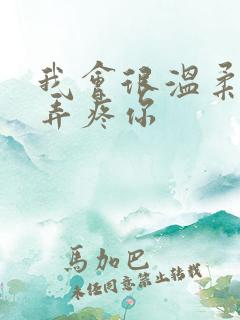 我會很溫柔
弄疼你
馬加巴
未經同意禁止轉載